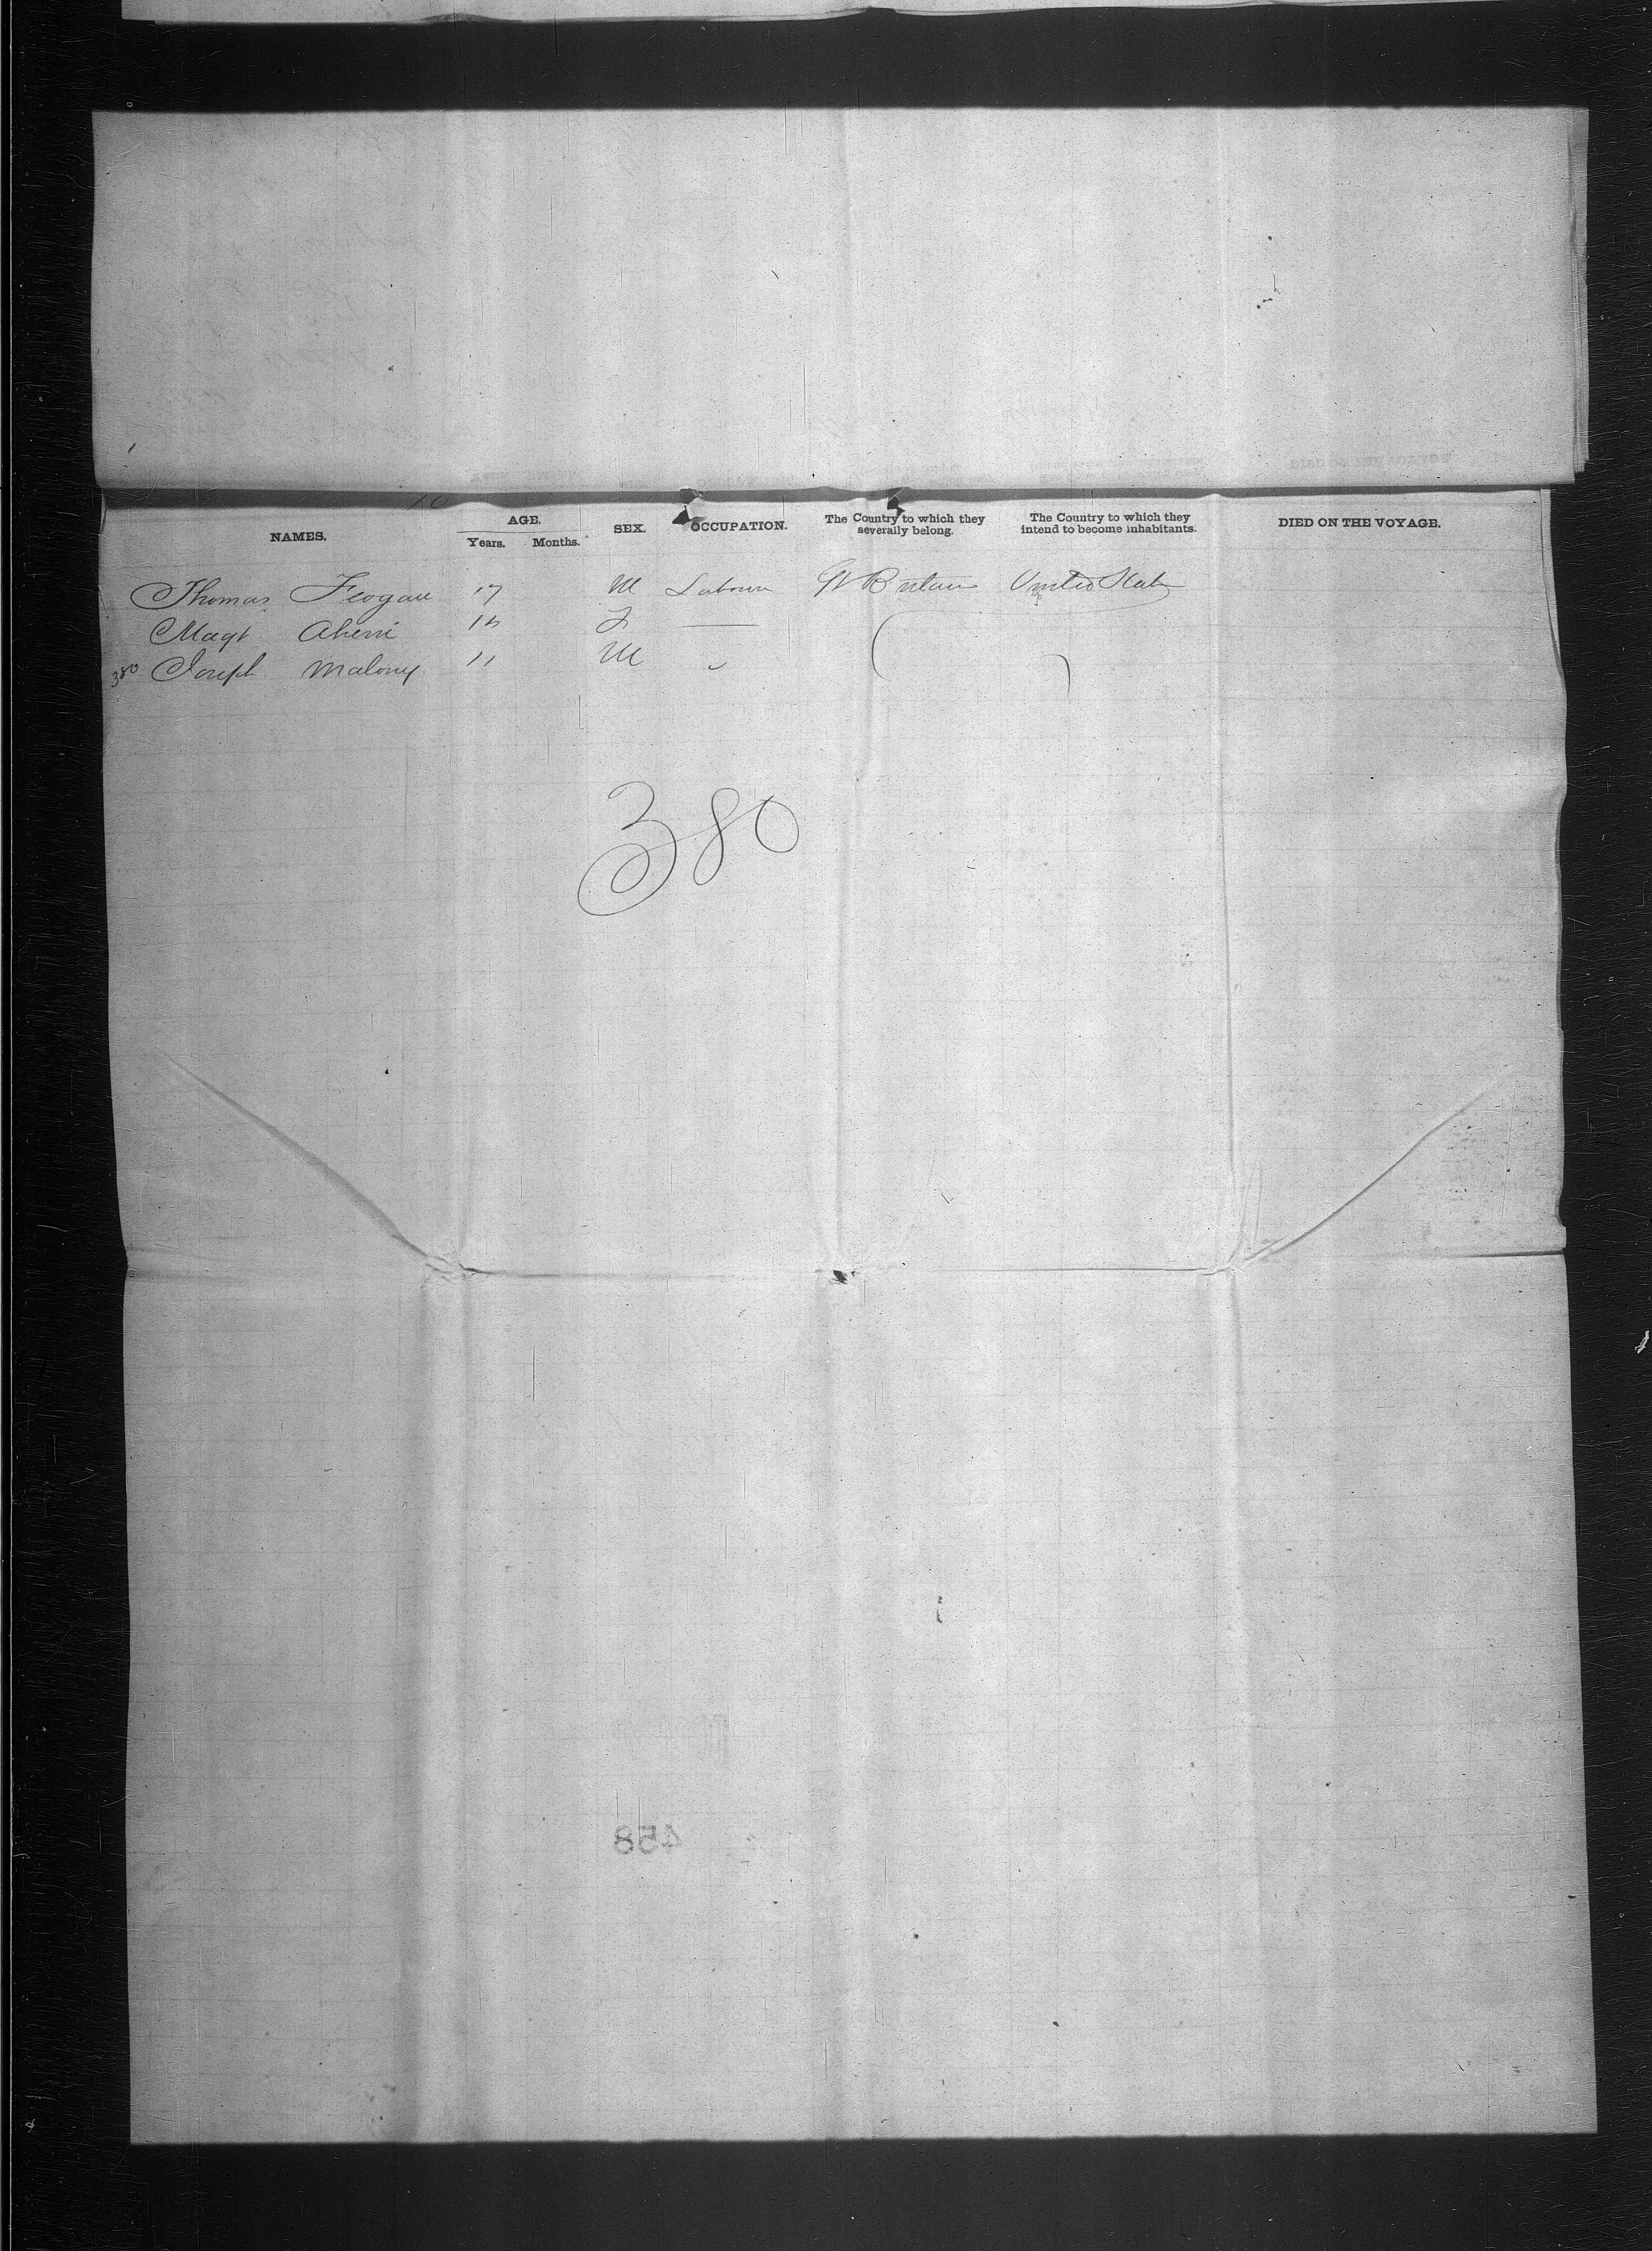 NAMES. AGE. SEX. OCCUPATION. The Country to which they severally belong. The Country to which they intend to become inhabitants. DIED ON THE VOYAGE.
Years. Months.
Thomas Feogan 17 M Labourer Gt Britain United States
Magt Ahern F —
380 Joseph Malony 11 M "
380
458